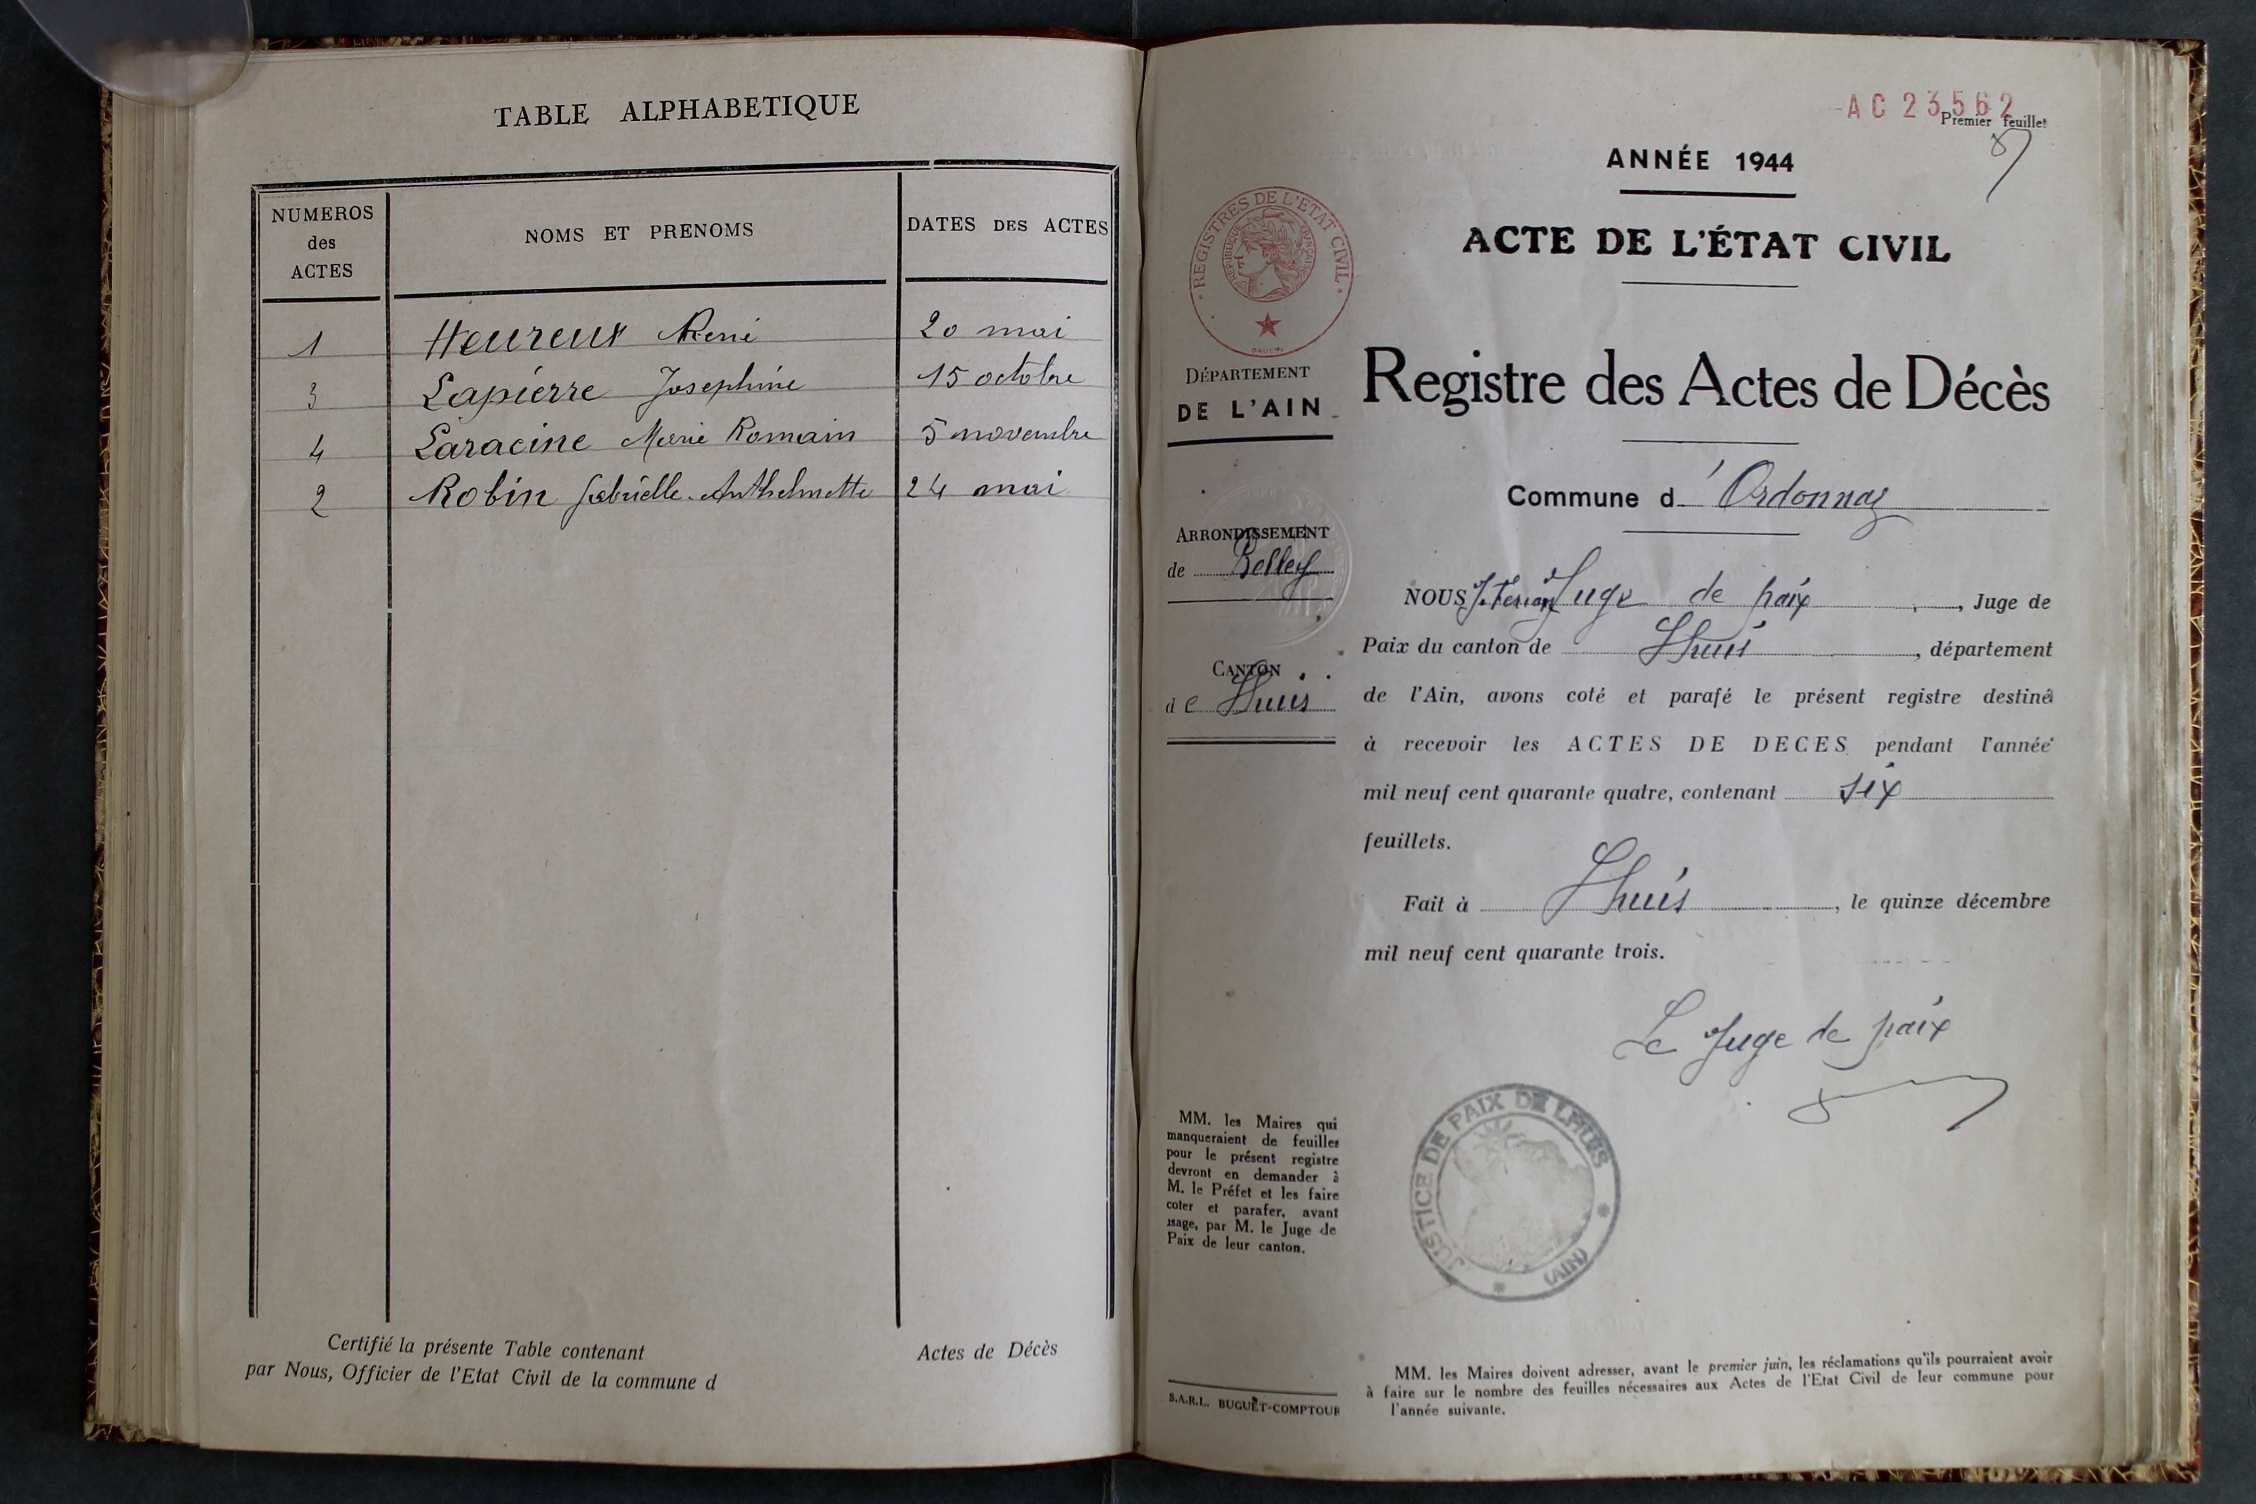 TABLE ALPHABETIQUE
NUMEROS
des
ACTES
NOMS ET PRENOMS
DATES DES ACTES
1 Heureux René 20 mai
3 Lapierre Josephine 15 octobre
4 Laracine Marie Romain 5 novembre
2 Robin Gabrielle Anthelmette 24 mai
Certifié la présente Table contenant Actes de Décès
par Nous, Officier de l'Etat Civil de la commune d
AC 23562
Premier feuillet
ANNÉE 1944
ACTE DE L'ÉTAT CIVIL
REGISTRES DE L'ÉTAT CIVIL
DÉPARTEMENT
DE L'AIN
Registre des Actes de Décès
Commune d'Ordonnaz
ARRONDISSEMENT
de Belley
CANTON
de Lhuis
NOUS Juge de paix, Juge de
Paix du canton de Lhuis, département
de l'Ain, avons coté et parafé le présent registre destiné
à recevoir les ACTES DE DECES pendant l'année
mil neuf cent quarante quatre, contenant six
feuillets.
Fait à Lhuis, le quinze décembre
mil neuf cent quarante trois.
Le Juge de paix
JUSTICE DE PAIX DE LHUIS
(AIN)
MM. les Maires qui
manqueraient de feuilles
pour le présent registre
devront en demander à
M. le Préfet et les faire
coter et parafer, avant
usage, par M. le Juge de
Paix de leur canton.
S.A.R.L. BUGUET-COMPTOUR
MM. les Maires doivent adresser, avant le premier juin, les réclamations qu'ils pourraient avoir
à faire sur le nombre des feuilles nécessaires aux Actes de l'Etat Civil de leur commune pour
l'année suivante.